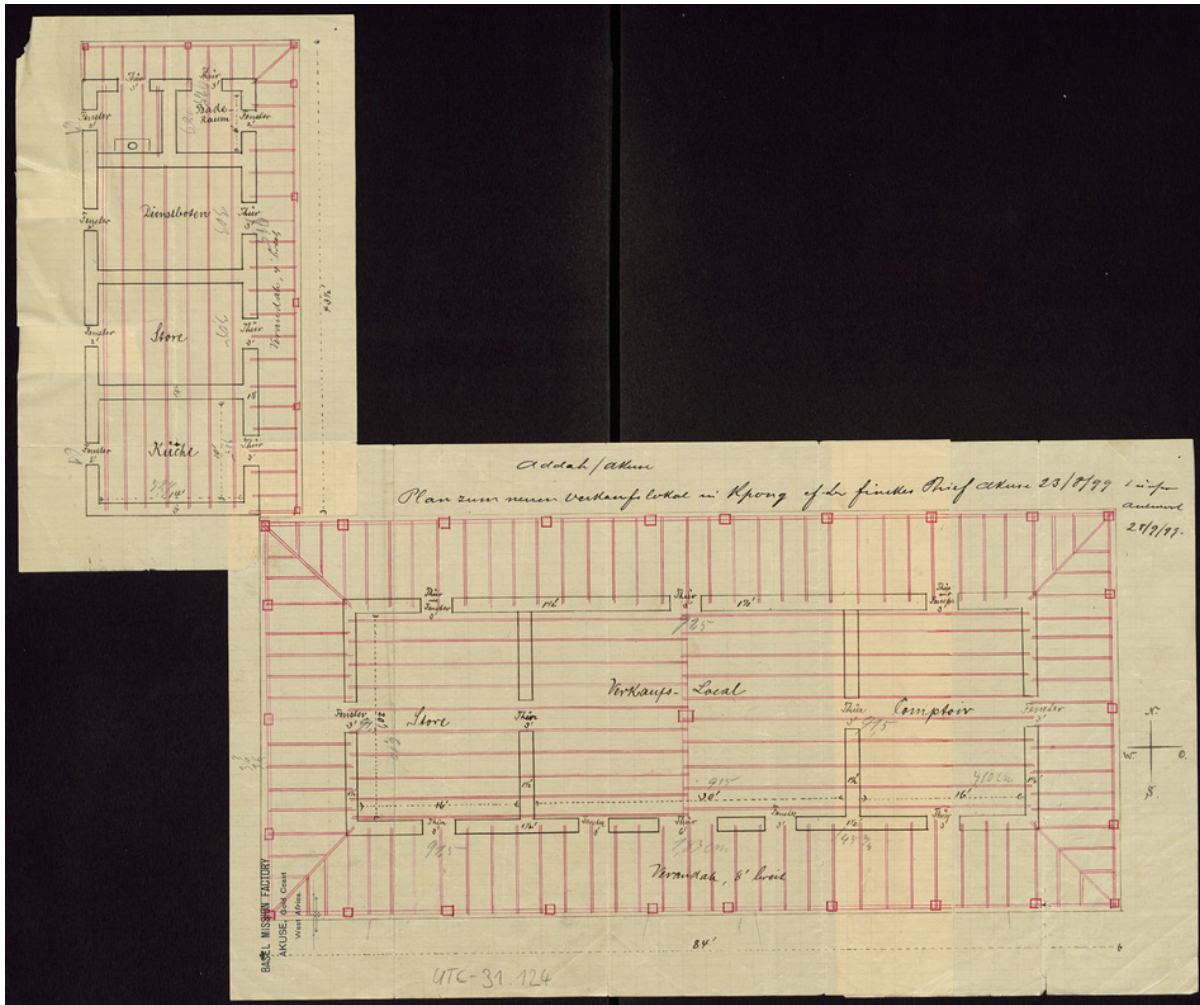 Thür
3'
Thür
3'
Fenster
2'
Bade-
Raum
Fenster
2'
Dienstboten
Fenster
Thür
3'
Verandah, 4' breit
Store
Fenster
2'
Thür
43½'
Küche
Fenster
2'
Thür
14'
Addah/Akuse
Plan zum neuen Verkaufslokal in Kpong Brief Akuse 23/8/99
28/9/99.
Thür
Fenster
3'
1½'
Thür
1½'
Thür
Fenster
3'
Verkaufs-Local
Fenster
3'
Store
Thür
3'
Thür
3'
Comptoir
Fenster
3'
915
915
N.
W. O.
S.
16'
1½'
915
30'
1½'
16'
Thür
3'
1½'
Fenster
Thür
6'
Fenster
3'
1½'
Thür
3'
Verandah, 8' breit
84'
BASEL MISSION FACTORY
AKUSE, Gold Coast
West Africa.
UTC-31.124